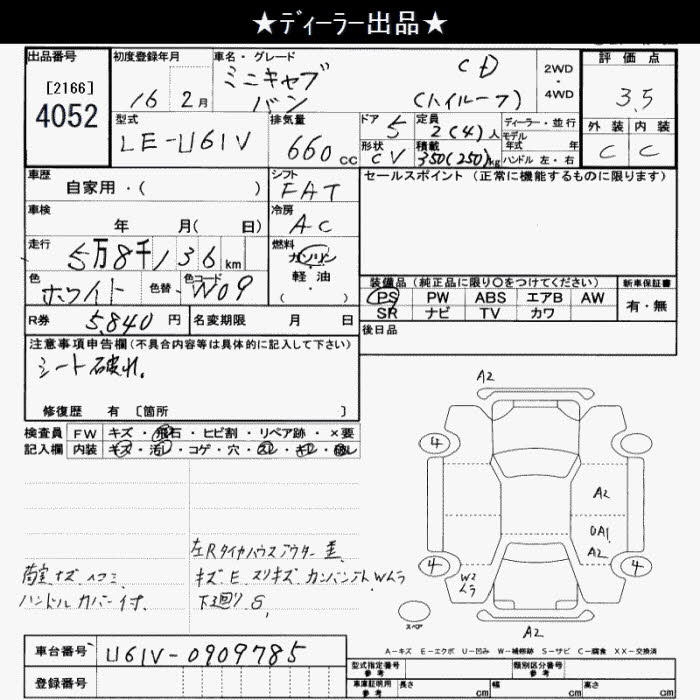 ★ディーラー出品★
出品番号 初度登録年月 車名・グレード 評価点
[2166] ミニキャブ CD 2WD
4052 16 2月 バン (ハイルーフ) ・4WD 3.5
型式 排気量 ドア 定員 ディーラー・並行 外装 内装
LE-U61V 660 cc 5 2(4)人 モデル年式 年 C C
形状 積載
CV 350(250)kg ハンドル 左・右
車歴 シフト セールスポイント(正常に機能するものに限ります)
自家用・( ) FAT
車検 冷房
年 月( 日) AC
走行 燃料
5万8千136km ガソリン
軽・油
( )
色 色替 色コード
ホワイト W09
装備品(純正品に限り○をつけてください) 新車保証書
PS PW ABS エアB AW 有・無
SR ナビ TV カワ
R券 5,840円 名変期限 月 日 後日品
注意事項申告欄(不具合内容等は具体的に記入して下さい)
シート破れ.
修復歴 有 [箇所 ]
検査員 FW キズ・飛石・ヒビ割・リペア跡・×要
記入欄 内装 キズ・汚レ・コゲ・穴・
A2
4
A2
UA1
A2
4 4
W2
ムラ
A2
スペア
左Rタイヤハウスアウター
荷室キズ.ヘコミ キズ E スリキズ カンバンアト Wムラ
ハンドルカバー付. 下廻り S
A-キズ E-エクボ U-凹み W-補修跡 S-サビ C-腐食 XX-交換済
車台番号 U61V-0909785
型式指定番号 参考 類別区分番号 参考
登録番号 車庫証明用 参考 長さ cm 幅 cm 高さ cm